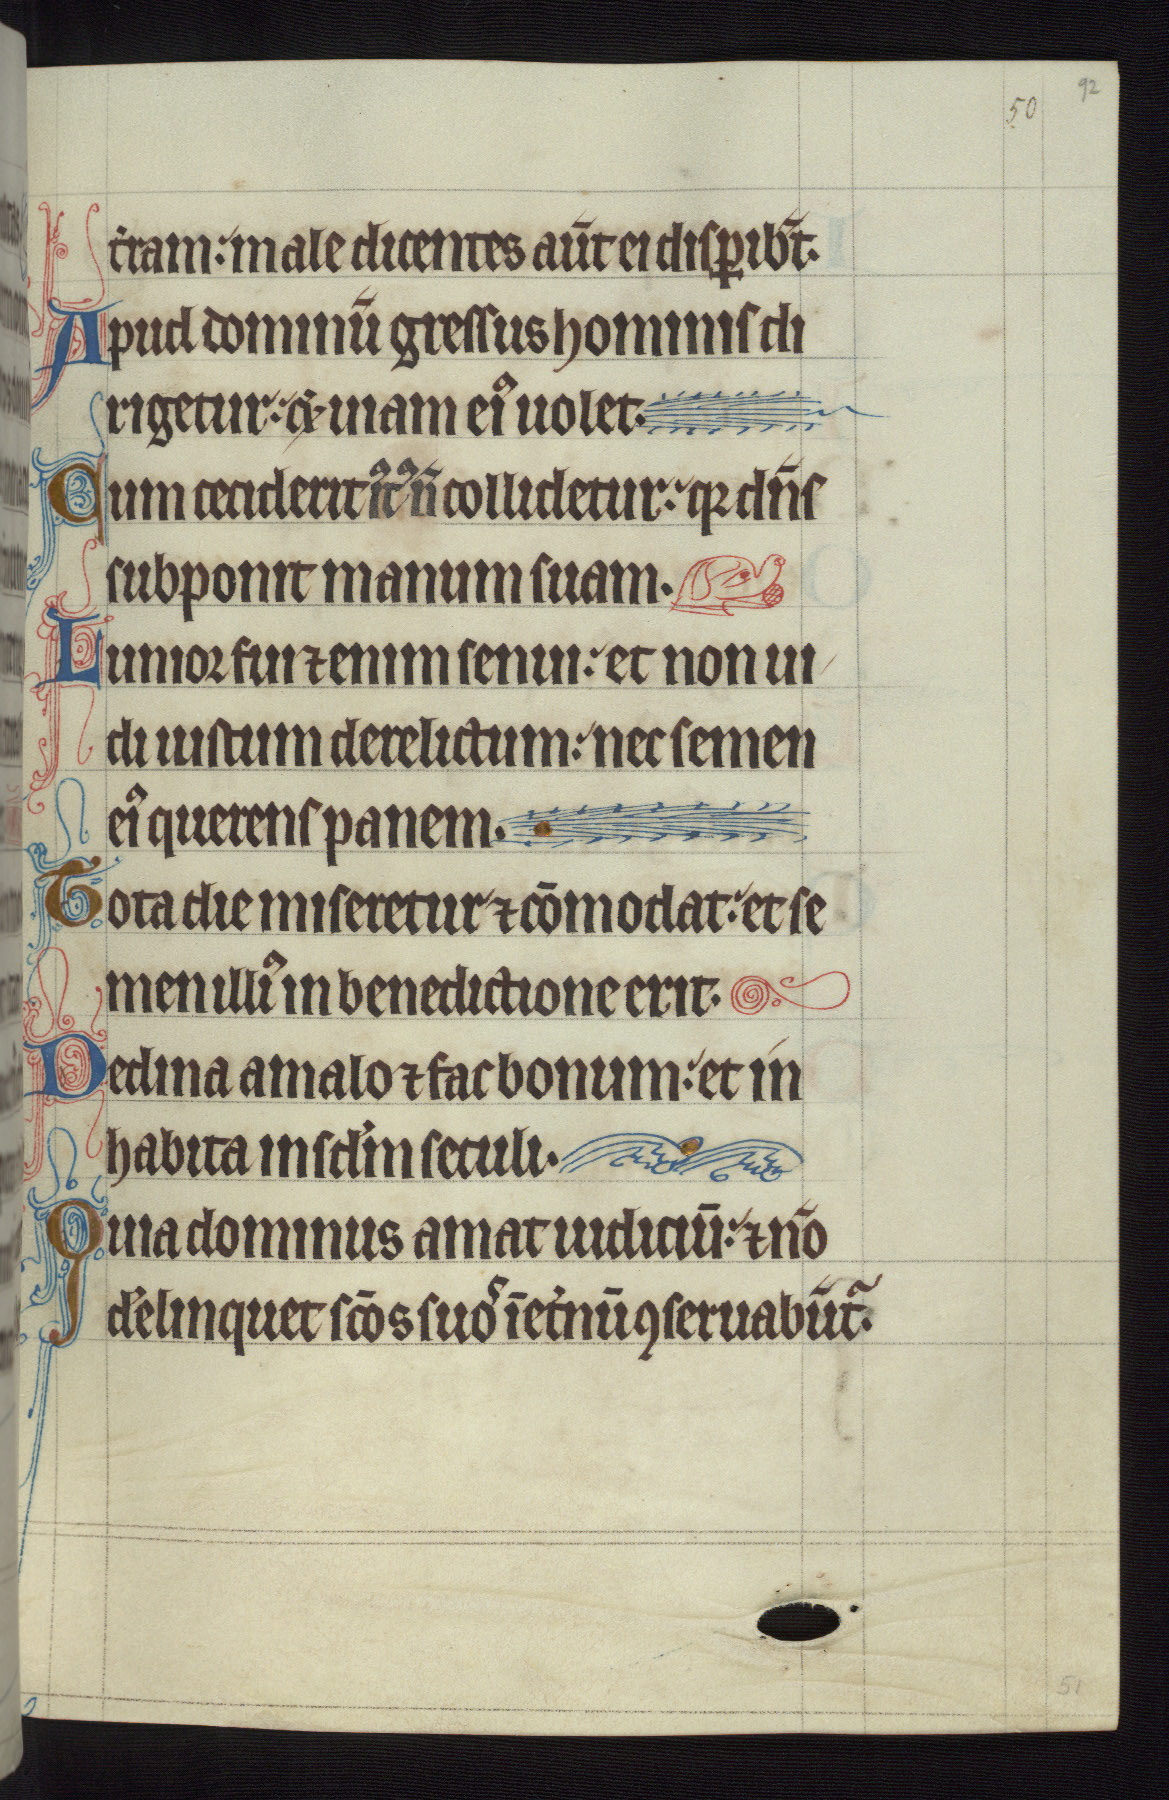 92
50
t̕ram: male dicentes aut̄ ei disꝑibt̄.
Apud dominū gressus hominis di
rigetur: ⁊ uiam eiꝰ uolet.
Cum ceciderit iꝰtꝰ n̄ collidetur: qꝛ dn̄s
subponit manum suam.
Iunior fui ⁊enim senui: et non ui
di iustum derelictum: nec semen
eiꝰ querens panem.
Tota die miseretur ⁊ cōmodat: et se
men illiꝰ in benedictione erit.
Declina a malo ⁊ fac bonum: et in
habita in sc̄lm seculi.
Quia dominus amat iudiciū: ⁊ nō
d̕elinquet sc̄os suoˢ ī et̕nū ꝯseruabūt᷑.
51